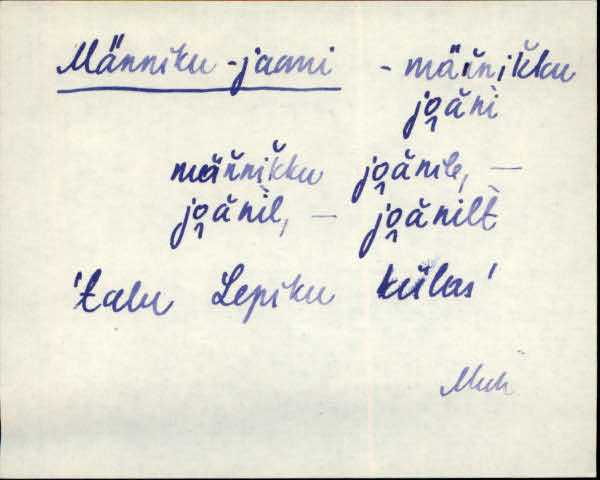 Männiku-jaani - mäňnikku
jo̭ăni
mäňnikku jo̭ănile, —
jo̭ănìl, — jo̭ănilt̀
'talu Lepiku külas'
Muh